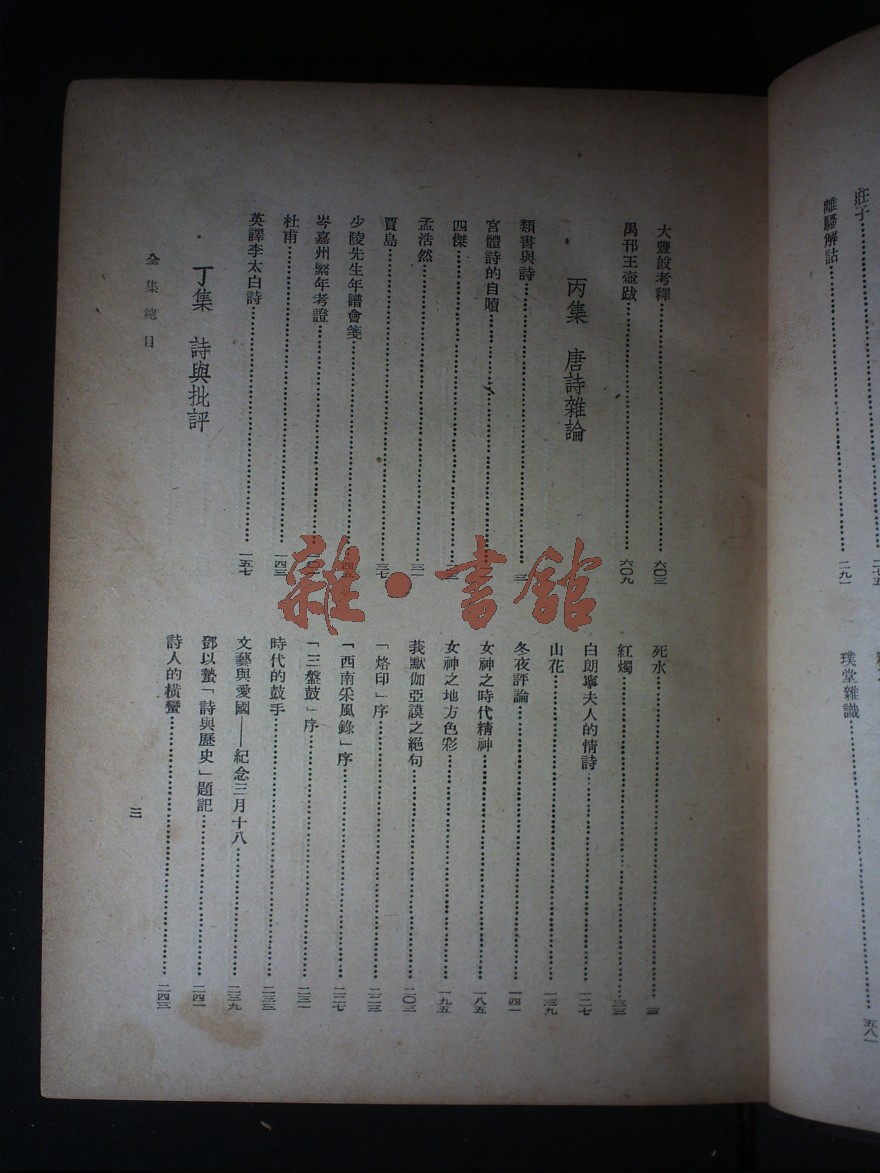 莊子……二七五
離騷解詁……二九一
璞堂雜識……五八一
大豐𣪘考釋……六〇三
禺邗王壺跋……六〇九
丙集 唐詩雜論
類書與詩……三
宮體詩的自贖……
四傑……
孟浩然……三一
賈島……三七
少陵先生年譜會箋……四五
岑嘉州繫年考證……一〇一
杜甫……一四三
英譯李太白詩……一五七
丁集 詩與批評
死水……三
紅燭……三三
白朗寧夫人的情詩……一二七
山花……一三九
冬夜評論……一四一
女神之時代精神……一八五
女神之地方色彩……一九五
莪默伽亞謨之絕句……二〇三
「烙印」序……二二三
「西南采風錄」序……二二七
「三盤鼓」序……二三一
時代的鼓手……二三三
文藝與愛國——紀念三月十八……二三九
鄧以蟄「詩與歷史」題記……二四一
詩人的橫蠻……二四三
全集總目
三
雜·書館